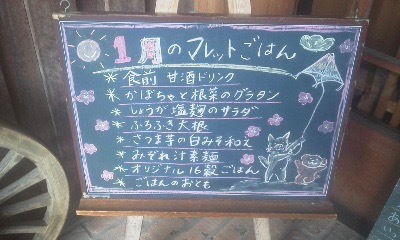 1月のマレットごはん
* 食前 甘酒ドリンク
* かぼちゃと根菜のグラタン
* しょうが塩麹のサラダ
* ふろふき大根
* さつま芋の白みそ和え
* みぞれ汁素麺
* オリジナル16穀ごはん
* ごはんのおとも